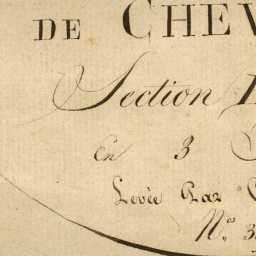 DE CHEV
Section
En 3
Levée Par
N.º 3